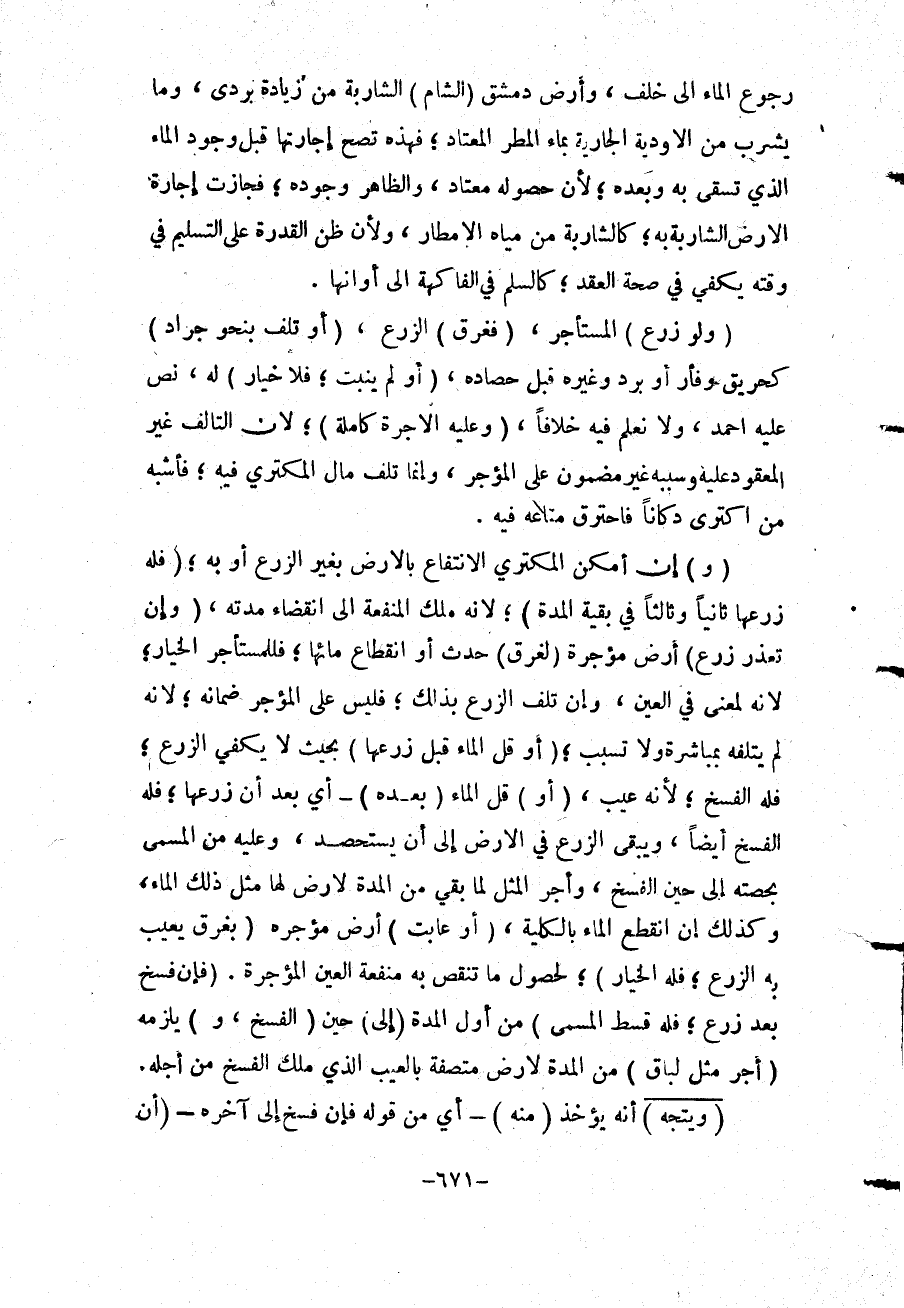 رجوع الماء الى خلف ، وأرض دمشق (الشام) الشاربة من زيادة بردى ، وما
يشرب من الاودية الجارية بماء المطر المعتاد ؛ فهذه تصح إجارتها قبل وجود الماء
الذي تسقى به وبعده ؛ لأن حصوله معتاد ، والظاهر وجوده ؛ فجازت إجارة
الارض الشاربة به ؛ كالشاربة من مياه الامطار ، ولأن ظن القدرة على التسليم في
وقته يكفي في صحة العقد ؛ كالسلم في الفاكهة الى أوانها .
( ولو زرع ) المستأجر ، ( فغرق ) الزرع ، ( أو تلف بنحو جراد )
كحريق وفأر أو برد وغيره قبل حصاده ، ( أو لم ينبت ؛ فلا خيار ) له ، نص
عليه احمد ، ولا نعلم فيه خلافاً ، ( وعليه الاجرة كاملة ) ؛ لان التالف غير
المعقود عليه وسببه غير مضمون على المؤجر ، وانما تلف مال المكتري فيه ؛ فأشبه
من اكترى دكاناً فاحترق متاعه فيه .
( و ) إن أمكن المكتري الانتفاع بالارض بغير الزرع أو به ؛ ( فله
زرعها ثانياً وثالثاً في بقية المدة ) ؛ لانه ملك المنفعة الى انقضاء مدته ، ( وإن
تعذر زرع) أرض مؤجرة (لغرق) حدث أو انقطاع مائها ؛ فللمستأجر الخيار؛
لانه لمعنى في العين ، وان تلف الزرع بذلك ؛ فليس على المؤجر ضمانه ؛ لانه
لم يتلفه بمباشرة ولا تسبب ؛( أو قل الماء قبل زرعها ) بحيث لا يكفي الزرع ؛
فله الفسخ ؛ لأنه عيب ، ( أو ) قل الماء ( بعده ) – أي بعد أن زرعها ؛ فله
الفسخ أيضاً ، ويبقى الزرع في الارض إلى أن يستحصد ، وعليه من المسمى
بحصته إلى حين الفسخ ، وأجر المثل لما بقي من المدة لارض لها مثل ذلك الماء،
وكذلك ان انقطع الماء بالكلية ، ( أو عابت ) أرض مؤجره ( بغرق يعيب
به الزرع ؛ فله الخيار ) ؛ لحصول ما تنقص به منفعة العين المؤجرة . (فإن فسخ
بعد زرع ؛ فله قسط المسمى ) من أول المدة (إلى) حين ( الفسخ ، و ) يلزمه
( أجر مثل لباق ) من المدة لارض متصفة بالعيب الذي ملك الفسخ من أجله.
( ويتجه ) أنه يؤخذ ( منه ) – أي من قوله فإن فسخ إلى آخره – (أن
–٦٧١–